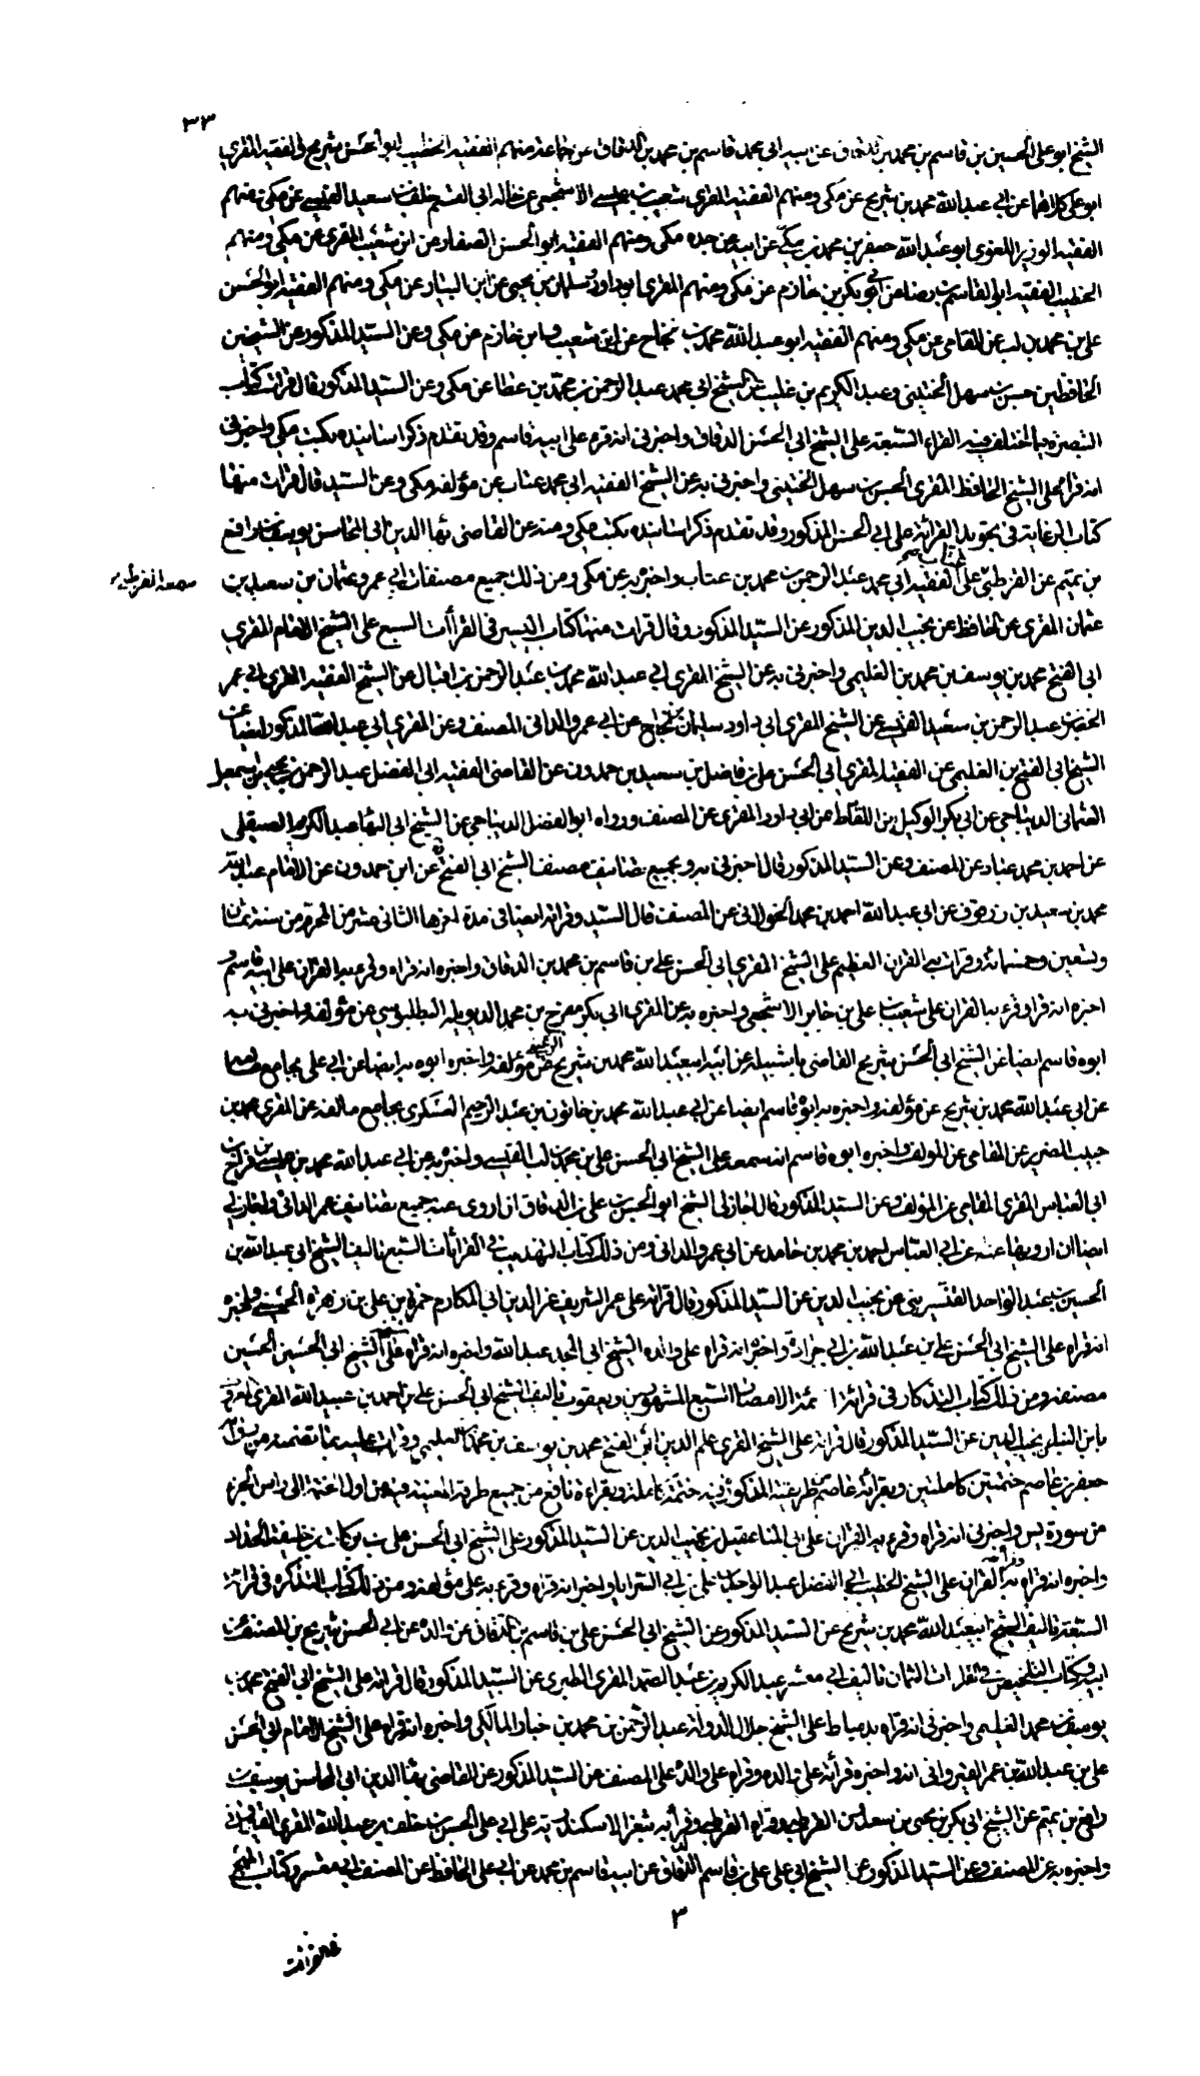 ٣٣
الشيخ ابو على الحسين بن قاسم بن محمد بن الدقاق عن ابيه ابي محمد قاسم بن محمد بن الدقاق عن جماعة منهم الفقيه الخطيب ابو الحسن شريح والفقيه المقري
ابو على كلاهما عن ابي عبد الله محمد بن شريح عن مكى ومنهم الفقيه المقري شعيب بن عيسى الاشجعي عن خاله ابي القسم خلف بن سعيد القيسي عن مكى ومنهم
الفقيه الوزير اللغوي ابو عبد الله جعفر بن محمد بن مكى عن ابيه عن جده مكى ومنهم الفقيه ابو الحسن الصفار عن ابن شعيب المقري عن مكى ومنهم
الخطيب الفقيه ابو القاسم بن رضا عن ابي بكر بن خازم عن مكى ومنهم المقري ابو داود سلمان بن يحيى عن ابن البياز عن مكى ومنهم الفقيه ابو الحسن
على بن محمد بن لب عن المقامي عن مكى ومنهم الفقيه ابو عبد الله محمد بن نجاح عن ابن شعيب وابن خازم عن مكى وعن السيد المذكور عن الشيخين
الحافظين حسن بن سهل الخشيني وعبد الكريم بن غليب عن الشيخ ابي محمد عبد الرحمن بن محمد بن عطا عن مكى وعن السيد المذكور قال قرات كتاب
التبصرة فيما اختلف فيه القراء السبعة على الشيخ ابي الحسن الدقاق واخبرني انه قرءه على ابيه قاسم وقد تقدم ذكر اسانيده بكتب مكى واخبرني
انه قراه على الشيخ الحافظ المقري الحسن بن سهل الخشيني واخبرني به عن الشيخ الفقيه ابي محمد عتاب عن مؤلفه مكى وعن السيد قال قرات منها
كتاب الرعاية في تجويد القرائة على ابي الحسن المذكور وقد تقدم ذكر اسانيده بكتب مكى ومنه عن القاضي بهاء الدين ابي المحاسن يوسف بن رافع
بن تميم عن القرطبي على الفقيه ابي محمد عبد الرحمن بن محمد بن عتاب واخبره به عن مكى ومن ذلك جميع مصنفات ابي عمرو عثمان بن سعيد بن
عثمان المقري عن الحافظ عن نجيب الدين المذكور عن السيد المذكور وقال قرات منها كتاب التيسير في القرأات السبع على الشيخ الامام المقري
ابي الفتح محمد بن يوسف بن محمد بن العليمي واخبرني به عن الشيخ المقري ابي عبد الله محمد بن عبد الرحمن بن اقبال عن الشيخ الفقيه المقري ابي عمر
الخضر بن عبد الرحمن بن سعيد القيسي عن الشيخ المقري ابي داود سليمان بن نجاح عن ابي عمرو الداني المصنف وعن المقري ابي عبد الله المذكور ايضا عن
الشيخ ابي الفتح بن العليمي عن الفقيه المقري ابي الحسن على بن فاضل بن سعيد بن حمدون عن القاضي الفقيه ابي الفضل عبد الرحمن بن يحيى بن اسمعيل
العثماني الديباجي عن ابي بكر الوكيل بن اللقاط عن ابي داود المقري عن المصنف ورواه ابو الفضل الديباجي عن الشيخ ابي البها عبد الكريم الصيقلي
عن احمد بن محمد عباد عن المصنف وعن السيد المذكور قال اخبرني به وبجميع تصانيف مصنفه الشيخ ابي الفتح عن ابن حمدون عن الامام عبد الله
محمد بن سعيد بن زرقون عن ابي عبد الله احمد بن محمد الخولاني عن المصنف قال السيد وقراته ايضا في مدة اخرها الثاني عشر من المحرم من سنة ثمان
وتسعين وخمسمائة وقرات به القران العظيم على الشيخ المقري ابي الحسن على بن قاسم بن محمد بن الدقاق واخبره انه قراه وقرء به القران على ابيه قاسم و
اخبره انه قراه وقرء به القران على شعيب بن على بن جابر الاشجعي واخبره به عن المقري ابي بكر مفرح بن محمد الديربلية البطليوسي عن مؤلفه واخبرني به
ابوه قاسم ايضا عن الشيخ ابي الحسن شريح القاضي باشبيلة عن ابيه ابي عبد الله محمد بن شريح الرعيني عن مؤلفه واخبره ابوه به ايضا عن ابي على بجامع
عن ابي عبد الله محمد بن شريح عن مؤلفه واخبره به ابوه قاسم ايضا عن ابي عبد الله محمد بن خاتون بن عبد الرحيم العسكري بجامع مالقه عن المقري محمد بن
حبيب الضرير عن المقامي عن المولف واخبره ابوه قاسم انه سمعه على الشيخ ابي الحسن على بن محمد بن لب القيسي واخبره به عن ابي عبد الله محمد بن عيسى بن فرج بن
ابي العباس المقري المقامي عن المؤلف وعن السيد المذكور قال اجاز لي الشيخ ابو الحسن بن على بن الدقاق ان اروى عنه جميع تصانيف عمرو الداني واجاز لي
ايضا ان ارويها عنه عن ابي العباس احمد بن محمد بن حامد عن ابي عمرو الداني ومن ذلك كتاب التهذيب في القرائات السبع تاليف الشيخ ابي عبد الله بن
الحسين بن عبد الواحد القنسريني عن نجيب الدين عن السيد المذكور قال قراته على عمي الشريف عز الدين ابي المكارم حمزة بن على بن زهرة الحسيني واخبره
انه قراه على الشيخ ابي الحسن على بن عبد الله بن ابي جرادة واخبره انه قراه على والده الشيخ ابي المجد عبد الله واخبره انه قراه على الشيخ ابي الحسين الحسين
مصنفه ومن ذلك كتاب التذكار في قرائة ائمة الامصار السبع المشهورين ويعقوب تاليف الشيخ ابي الحسن على بن احمد بن عبيد الله المقري
نجيب الدين عن السيد المذكور قال قراته على الشيخ المقري علم الدين ابي الفتح محمد بن يوسف بن محمد العليمي وقرات عليه بما تضمنه من
جعفر بن عاصم ختمتين كاملتين وبقرائة عاصم من طريقيه المذكورين فيه ختمة كاملة وبقراءة نافع من جميع طرقه المعينة فيه من اول الختمة الى راس الجزء
من سورة يس واخبرني انه قراه وقرء به القران على ابي المنا عقيل نجيب الدين عن السيد المذكور على الشيخ ابي الحسن على بن بركات بن خليفة الحداد
واخبره انه قراه وقرأ به القران على الشيخ الخطيب ابي الفضل عبد الواحد بن على بن ابي السرايا واخبره انه قراه وقرء به على مؤلفه ومن ذلك كتاب التذكرة في قرائة
السبعة تاليف الشيخ ابي عبد الله محمد بن شريح عن السيد المذكور عن الشيخ ابي الحسن على بن قاسم بن الدقاق عن والده عن ابي الحسن شريح بن المصنف عن
ابيه وكتاب التلخيص في القراءات الثمان تاليف ابي معشر عبد الكريم بن عبد الصمد المقري الطبري عن السيد المذكور قال قراته على الشيخ ابي الفتح محمد بن
يوسف بن محمد العليمي واخبرني انه قراه بدمياط على الشيخ جلال الدولة عبد الرحمن بن محمد بن خباز المالكي واخبره انه قراه على الشيخ الامام ابي الحسن
على بن عبد الله بن عمر القيرواني انه واخبره قرأته على والده وقراه على والده على المصنف عن السيد المذكور عن القاضي بهاء الدين ابي المحاسن يوسف بن
رافع بن تميم عن الشيخ ابي بكر بن يحيى بن سعدون القرطبي وقراه القرطبي وقرأ به بثغر الاسكندرية على ابي على الحسن بن خلف بن عبد الله المقري القيرواني
واخبره به عن المصنف وعن السيد المذكور عن الشيخ ابي على على بن قاسم الدقاق عن ابيه قاسم بن محمد عن ابي على الحافظ عن المصنف ابي معشر وكتاب المبهج
٣
في القرائت